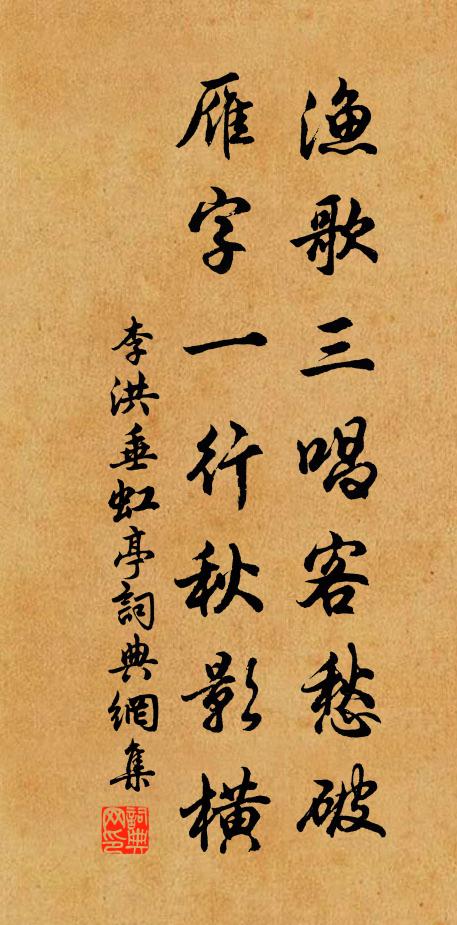 渔歌三唱客愁破
雁字一行秋影橫
李洪垂虹亭詞典網集
詞典网印